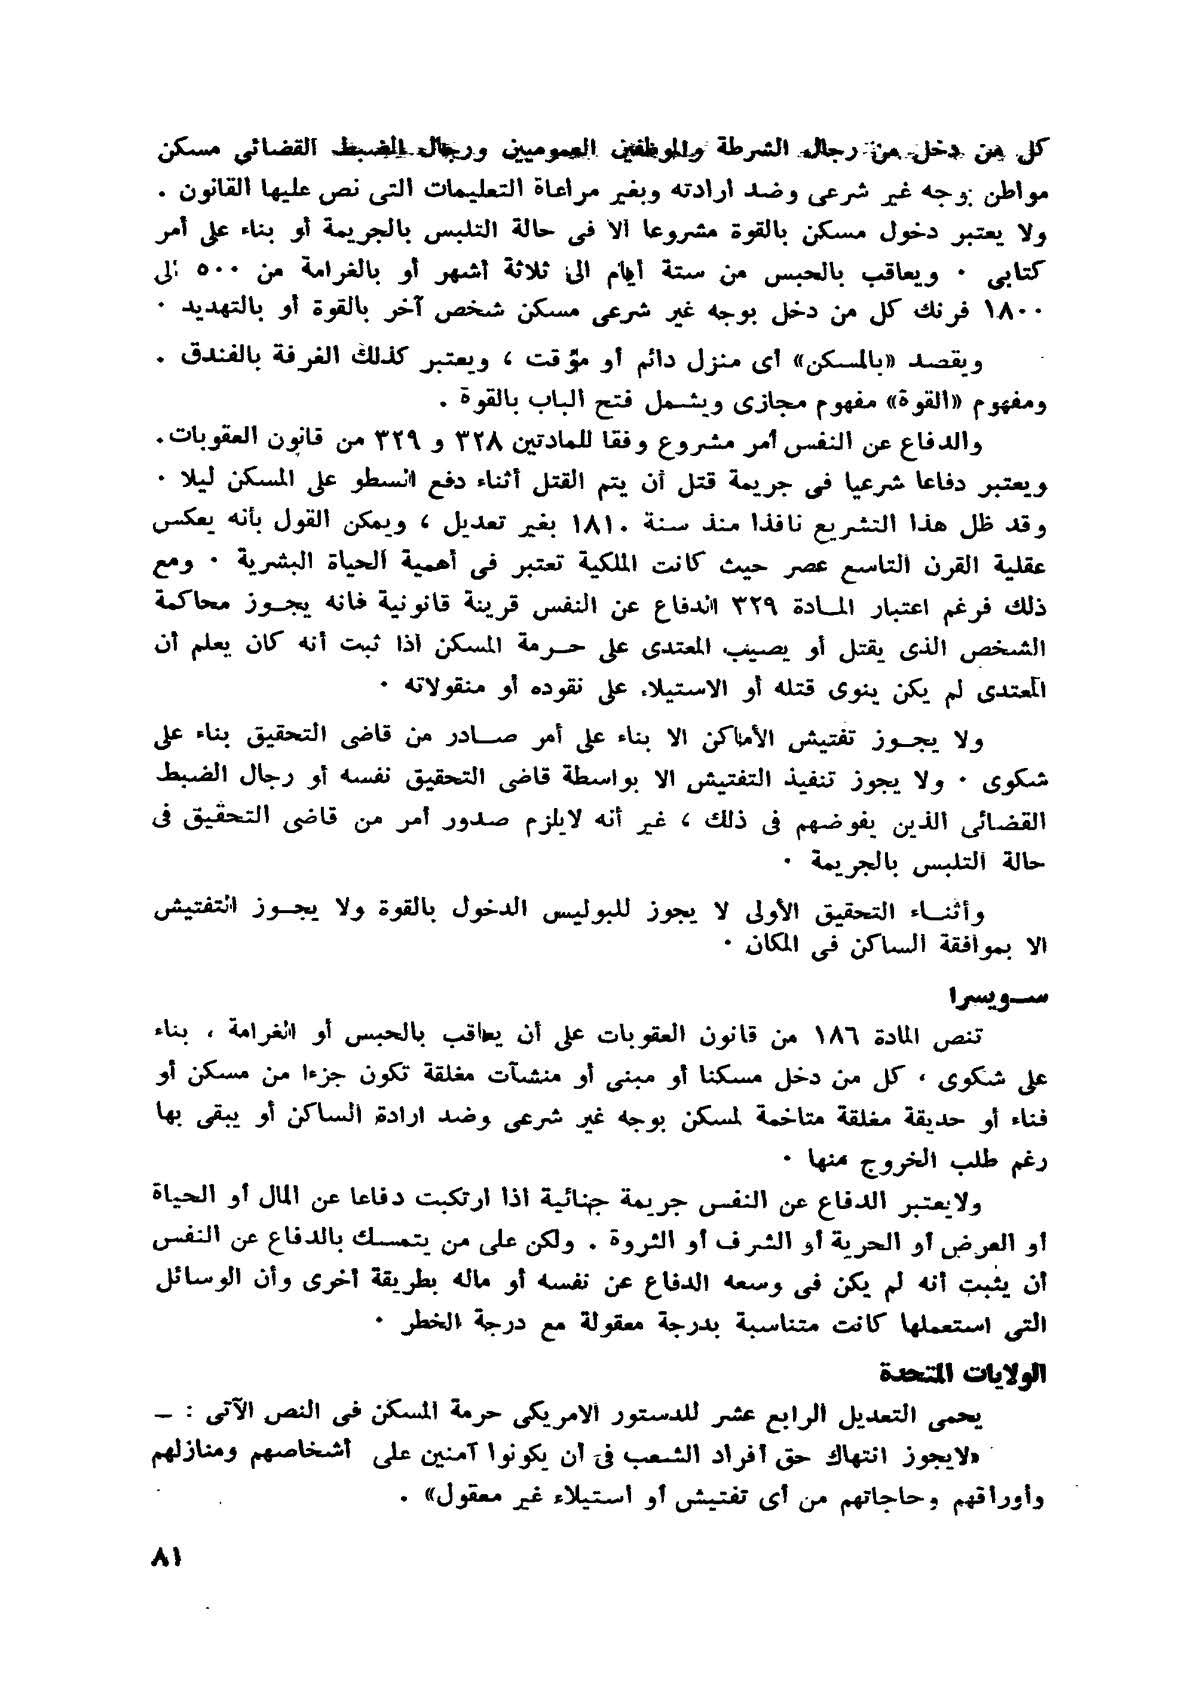 كل من دخل من رجال الشرطة والموظفين العموميين ورجال الضبط القضائي مسكن
مواطن بوجه غير شرعى وضد ارادته وبغير مراعاة التعليمات التى نص عليها القانون .
ولا يعتبر دخول مسكن بالقوة مشروعا الا فى حالة التلبس بالجريمة أو بناء على أمر
كتابى . ويعاقب بالحبس من ستة أيام الى ثلاثة أشهر أو بالغرامة من ٥٠٠ الى
١٨٠٠ فرنك كل من دخل بوجه غير شرعى مسكن شخص آخر بالقوة أو بالتهديد .
ويقصد «بالمسكن» أى منزل دائم أو مؤقت ، ويعتبر كذلك الغرفة بالفندق .
ومفهوم «القوة» مفهوم مجازى ويشمل فتح الباب بالقوة .
والدفاع عن النفس أمر مشروع وفقا للمادتين ٣٢٨ و ٣٢٩ من قانون العقوبات.
ويعتبر دفاعا شرعيا فى جريمة قتل أن يتم القتل أثناء دفع السطو على المسكن ليلا .
وقد ظل هذا التشريع نافذا منذ سنة ١٨١٠ بغير تعديل ، ويمكن القول بأنه يعكس
عقلية القرن التاسع عصر حيث كانت الملكية تعتبر فى أهمية الحياة البشرية . ومع
ذلك فرغم اعتبار المادة ٣٢٩ الدفاع عن النفس قرينة قانونية فانه يجوز محاكمة
الشخص الذى يقتل أو يصيب المعتدى على حرمة المسكن اذا ثبت أنه كان يعلم أن
المعتدى لم يكن ينوى قتله أو الاستيلاء على نقوده أو منقولاته .
ولا يجوز تفتيش الأماكن الا بناء على أمر صادر من قاضى التحقيق بناء على
شكوى . ولا يجوز تنفيذ التفتيش الا بواسطة قاضى التحقيق نفسه أو رجال الضبط
القضائى الذين يفوضهم فى ذلك ، غير أنه لايلزم صدور أمر من قاضى التحقيق فى
حالة التلبس بالجريمة .
وأثناء التحقيق الأولى لا يجوز للبوليس الدخول بالقوة ولا يجوز التفتيش
الا بموافقة الساكن فى المكان .
سويسرا
تنص المادة ١٨٦ من قانون العقوبات على أن يعاقب بالحبس أو الغرامة ، بناء
على شكوى ، كل من دخل مسكنا أو مبنى أو منشآت مغلقة تكون جزءا من مسكن أو
فناء أو حديقة مغلقة متاخمة لمسكن بوجه غير شرعى وضد ارادة الساكن أو يبقى بها
رغم طلب الخروج منها .
ولايعتبر الدفاع عن النفس جريمة جنائية اذا ارتكبت دفاعا عن المال أو الحياة
أو العرض أو الحرية أو الشرف أو الثروة . ولكن على من يتمسك بالدفاع عن النفس
أن يثبت أنه لم يكن فى وسعه الدفاع عن نفسه أو ماله بطريقة أخرى وأن الوسائل
التى استعملها كانت متناسبة بدرجة معقولة مع درجة الخطر .
الولايات المتحدة
يحمى التعديل الرابع عشر للدستور الامريكى حرمة المسكن فى النص الآتى : ـ
«لايجوز انتهاك حق أفراد الشعب فى أن يكونوا آمنين على أشخاصهم ومنازلهم
وأوراقهم وحاجاتهم من أى تفتيش أو استيلاء غير معقول» .
٨١